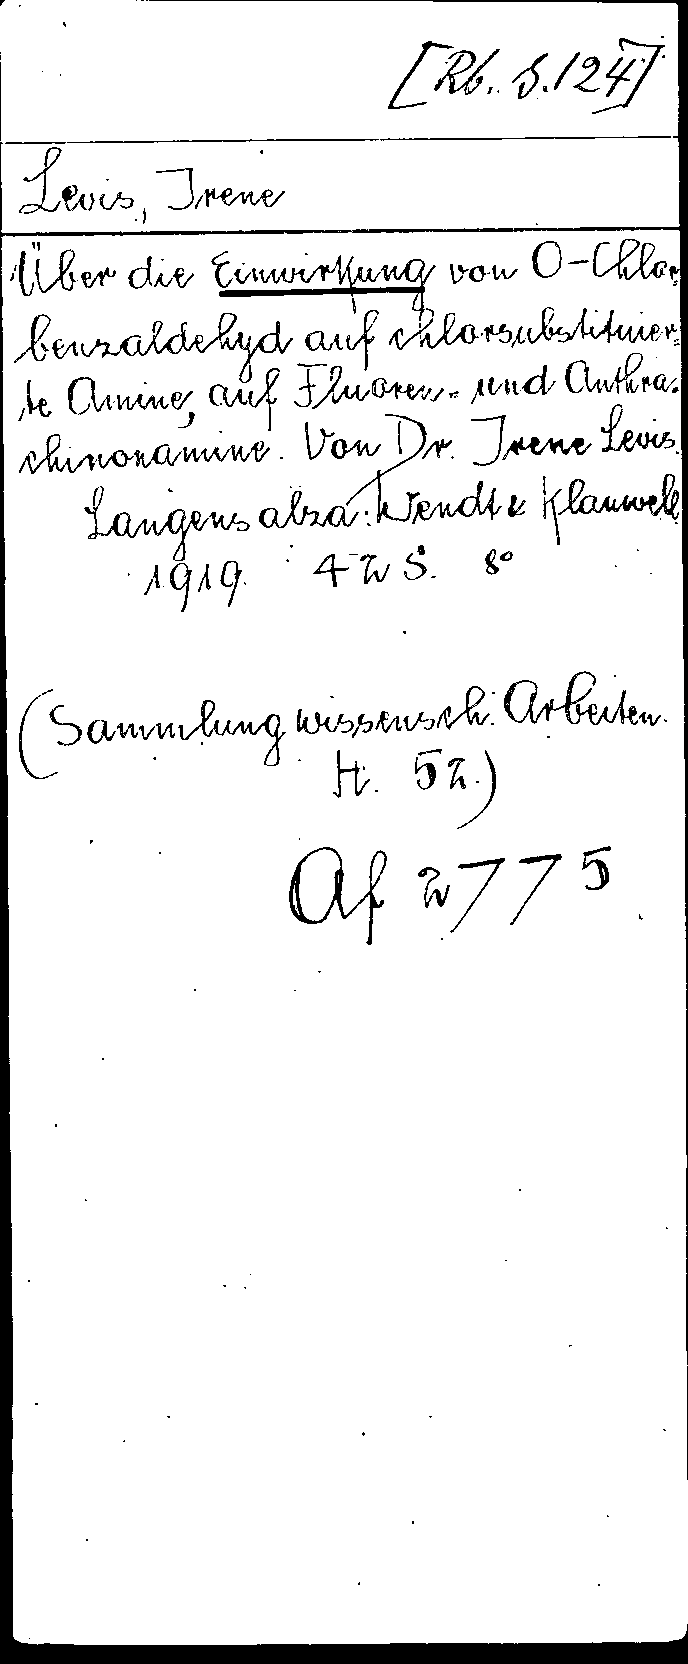 [Rb. S. 124]
Levis, Irene
Über die Einwirkung von O-Chlor=
benzaldehyd auf chlorsubstituier=
te Amine, auf Fluoren- und Anthra-
chinonamine. Von Dr. Irene Levis.
Langensalza: Wendt & Klauwell
1919. 42 S. 8°
(Sammlung wissensch. Arbeiten.
H. 52.)
Af 2775